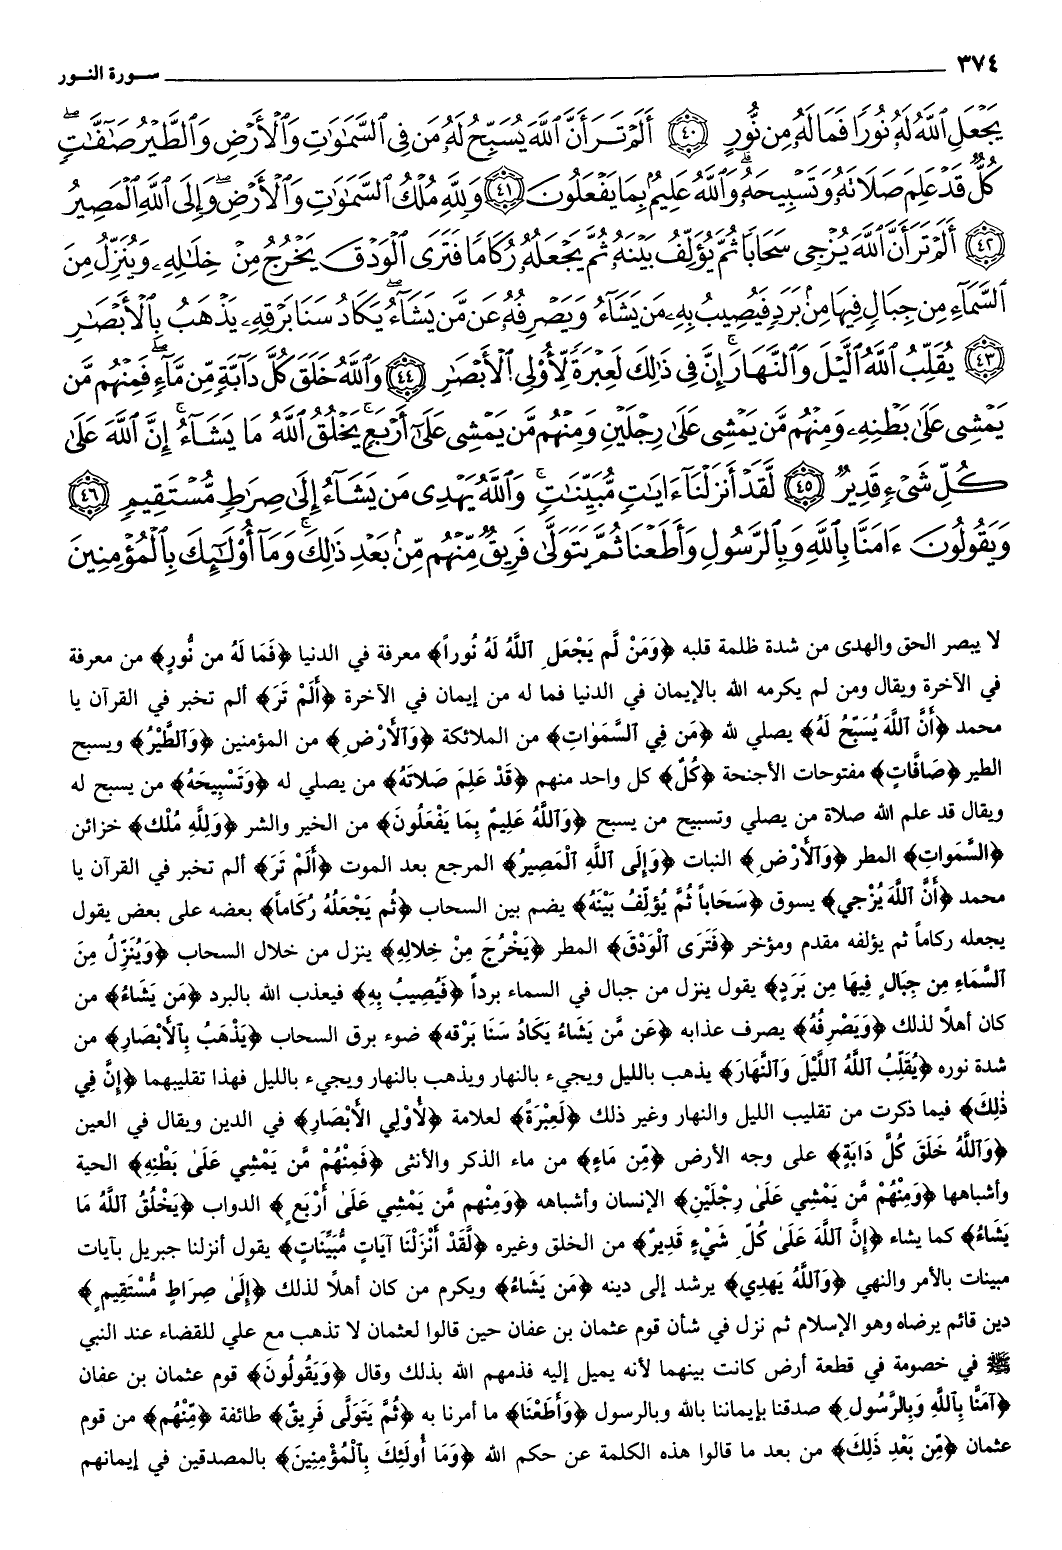 ٣٧٤ سورة النور
يَجْعَلِ ٱللَّهُ لَهُۥ نُورًا فَمَا لَهُۥ مِن نُّورٍ ٤٠ أَلَمْ تَرَ أَنَّ ٱللَّهَ يُسَبِّحُ لَهُۥ مَن فِى ٱلسَّمَٰوَٰتِ وَٱلْأَرْضِ وَٱلطَّيْرُ صَٰٓفَّٰتٍۖ
كُلٌّ قَدْ عَلِمَ صَلَاتَهُۥ وَتَسْبِيحَهُۥۗ وَٱللَّهُ عَلِيمٌۢ بِمَا يَفْعَلُونَ ٤١ وَلِلَّهِ مُلْكُ ٱلسَّمَٰوَٰتِ وَٱلْأَرْضِۖ وَإِلَى ٱللَّهِ ٱلْمَصِيرُ
٤٢ أَلَمْ تَرَ أَنَّ ٱللَّهَ يُزْجِى سَحَابًا ثُمَّ يُؤَلِّفُ بَيْنَهُۥ ثُمَّ يَجْعَلُهُۥ رُكَامًا فَتَرَى ٱلْوَدْقَ يَخْرُجُ مِنْ خِلَٰلِهِۦ وَيُنَزِّلُ مِنَ
ٱلسَّمَآءِ مِن جِبَالٍ فِيهَا مِنۢ بَرَدٍ فَيُصِيبُ بِهِۦ مَن يَشَآءُ وَيَصْرِفُهُۥ عَن مَّن يَشَآءُۖ يَكَادُ سَنَا بَرْقِهِۦ يَذْهَبُ بِٱلْأَبْصَٰرِ
٤٣ يُقَلِّبُ ٱللَّهُ ٱلَّيْلَ وَٱلنَّهَارَۚ إِنَّ فِى ذَٰلِكَ لَعِبْرَةً لِّأُو۟لِى ٱلْأَبْصَٰرِ ٤٤ وَٱللَّهُ خَلَقَ كُلَّ دَآبَّةٍ مِّن مَّآءٍۖ فَمِنْهُم مَّن
يَمْشِى عَلَىٰ بَطْنِهِۦ وَمِنْهُم مَّن يَمْشِى عَلَىٰ رِجْلَيْنِ وَمِنْهُم مَّن يَمْشِى عَلَىٰٓ أَرْبَعٍۚ يَخْلُقُ ٱللَّهُ مَا يَشَآءُۚ إِنَّ ٱللَّهَ عَلَىٰ
كُلِّ شَىْءٍ قَدِيرٌ ٤٥ لَّقَدْ أَنزَلْنَآ ءَايَٰتٍ مُّبَيِّنَٰتٍۚ وَٱللَّهُ يَهْدِى مَن يَشَآءُ إِلَىٰ صِرَٰطٍ مُّسْتَقِيمٍ ٤٦
وَيَقُولُونَ ءَامَنَّا بِٱللَّهِ وَبِٱلرَّسُولِ وَأَطَعْنَا ثُمَّ يَتَوَلَّىٰ فَرِيقٌ مِّنْهُم مِّنۢ بَعْدِ ذَٰلِكَۚ وَمَآ أُو۟لَٰٓئِكَ بِٱلْمُؤْمِنِينَ
لا يبصر الحق والهدى من شدة ظلمة قلبه ﴿وَمَنْ لَّم يَجْعَلِ ٱللَّهُ لَهُ نُوراً﴾ معرفة في الدنيا ﴿فَمَا لَهُ من نُّورٍ﴾ من معرفة
في الآخرة ويقال ومن لم يكرمه الله بالإيمان في الدنيا فما له من إيمان في الآخرة ﴿أَلَمْ تَرَ﴾ ألم تخبر في القرآن يا
محمد ﴿أَنَّ ٱللَّهَ يُسَبِّحُ لَهُ﴾ يصلي لله ﴿مَن فِي ٱلسَّمَوٰاتِ﴾ من الملائكة ﴿وَٱلأَرْضِ﴾ من المؤمنين ﴿وَٱلطَّيْرُ﴾ ويسبح
الطير ﴿صَافَّاتٍ﴾ مفتوحات الأجنحة ﴿كُلٌّ﴾ كل واحد منهم ﴿قَدْ عَلِمَ صَلاتَهُ﴾ من يصلي له ﴿وَتَسْبِيحَهُ﴾ من يسبح له
ويقال قد علم الله صلاة من يصلي وتسبيح من يسبح ﴿وَٱللَّهُ عَلِيمٌ بِمَا يَفْعَلُونَ﴾ من الخير والشر ﴿وَلِلَّهِ مُلْك﴾ خزائن
﴿السَّمَواتِ﴾ المطر ﴿وَٱلأَرْضِ﴾ النبات ﴿وَإِلَى ٱللَّهِ ٱلْمَصِيرُ﴾ المرجع بعد الموت ﴿أَلَمْ تَرَ﴾ ألم تخبر في القرآن يا
محمد ﴿أَنَّ ٱللَّهَ يُزْجِي﴾ يسوق ﴿سَحَاباً ثُمَّ يُؤلِّفُ بَيْنَهُ﴾ يضم بين السحاب ﴿ثُم يَجْعَلُهُ رُكَاماً﴾ بعضه على بعض يقول
يجعله ركاماً ثم يؤلفه مقدم ومؤخر ﴿فَتَرَى ٱلْوَدْقَ﴾ المطر ﴿يَخْرُجَ مِنْ خِلالِهِ﴾ ينزل من خلال السحاب ﴿وَيُنَزِّلُ مِنَ
ٱلسَّمَاءِ مِن جِبَالٍ فِيهَا مِن بَرَدٍ﴾ يقول ينزل من جبال في السماء برداً ﴿فَيُصِيبُ بِهِ﴾ فيعذب الله بالبرد ﴿مَن يَشَاءُ﴾ من
كان أهلاً لذلك ﴿وَيَصْرِفُهُ﴾ يصرف عذابه ﴿عَن مَّن يَشَاءُ يَكَادُ سَنَا بَرْقه﴾ ضوء برق السحاب ﴿يَذْهَبُ بِٱلأَبْصَارِ﴾ من
شدة نوره ﴿يُقَلِّبُ ٱللَّهُ اللَّيْلَ وَٱلنَّهَارَ﴾ يذهب بالليل ويجيء بالنهار ويذهب بالنهار ويجيء بالليل فهذا تقليبهما ﴿إِنَّ فِي
ذٰلِكَ﴾ فيما ذكرت من تقليب الليل والنهار وغير ذلك ﴿لَعِبْرَةً﴾ لعلامة ﴿لأوْلِي الأَبْصَارِ﴾ في الدين ويقال في العين
﴿وَٱللَّهُ خَلَقَ كُلَّ دَابَةٍ﴾ على وجه الأرض ﴿مِّن مَاءٍ﴾ من ماء الذكر والأنثى ﴿فَمِنْهُمْ مَّن يَمْشِي عَلَىٰ بَطْنِهِ﴾ الحية
وأشباهها ﴿وَمِنْهُمْ مَّن يَمْشِي عَلَىٰ رِجْلَيْنِ﴾ الإنسان وأشباهه ﴿وَمِنْهم مَّن يَمْشِي عَلَىٰ أَرْبَعٍ﴾ الدواب ﴿يَخْلُقُ ٱللَّهُ مَا
يَشَاءُ﴾ كما يشاء ﴿إِنَّ ٱللَّهَ عَلَىٰ كُلِّ شَيْءٍ قَدِيرٌ﴾ من الخلق وغيره ﴿لَّقَدْ أَنْزَلْنَا آيَاتٍ مُّبَيِّنَاتٍ﴾ يقول أنزلنا جبريل بآيات
مبينات بالأمر والنهي ﴿وَٱللَّهُ يَهدِي﴾ يرشد إلى دينه ﴿مَن يَشَاءُ﴾ ويكرم من كان أهلاً لذلك ﴿إِلَىٰ صِرَاطٍ مُّسْتَقِيمٍ﴾
دين قائم يرضاه وهو الإسلام ثم نزل في شأن قوم عثمان بن عفان حين قالوا لعثمان لا تذهب مع علي للقضاء عند النبي
ﷺ في خصومة في قطعة أرض كانت بينهما لأنه يميل إليه فذمهم الله بذلك وقال ﴿وَيَقُولُونَ﴾ قوم عثمان بن عفان
﴿آمَنَّا بِٱللَّهِ وَبِالرَّسُولِ﴾ صدقنا بإيماننا بالله وبالرسول ﴿وَأَطَعْنَا﴾ ما أمرنا به ﴿ثُمَّ يَتَوَلَّى فَرِيقٌ﴾ طائفة ﴿مِّنْهُم﴾ من قوم
عثمان ﴿مِّن بَعْدِ ذَلِكَ﴾ من بعد ما قالوا هذه الكلمة عن حكم الله ﴿وَمَا أُولَئِكَ بِٱلْمُؤْمِنِينَ﴾ بالمصدقين في إيمانهم